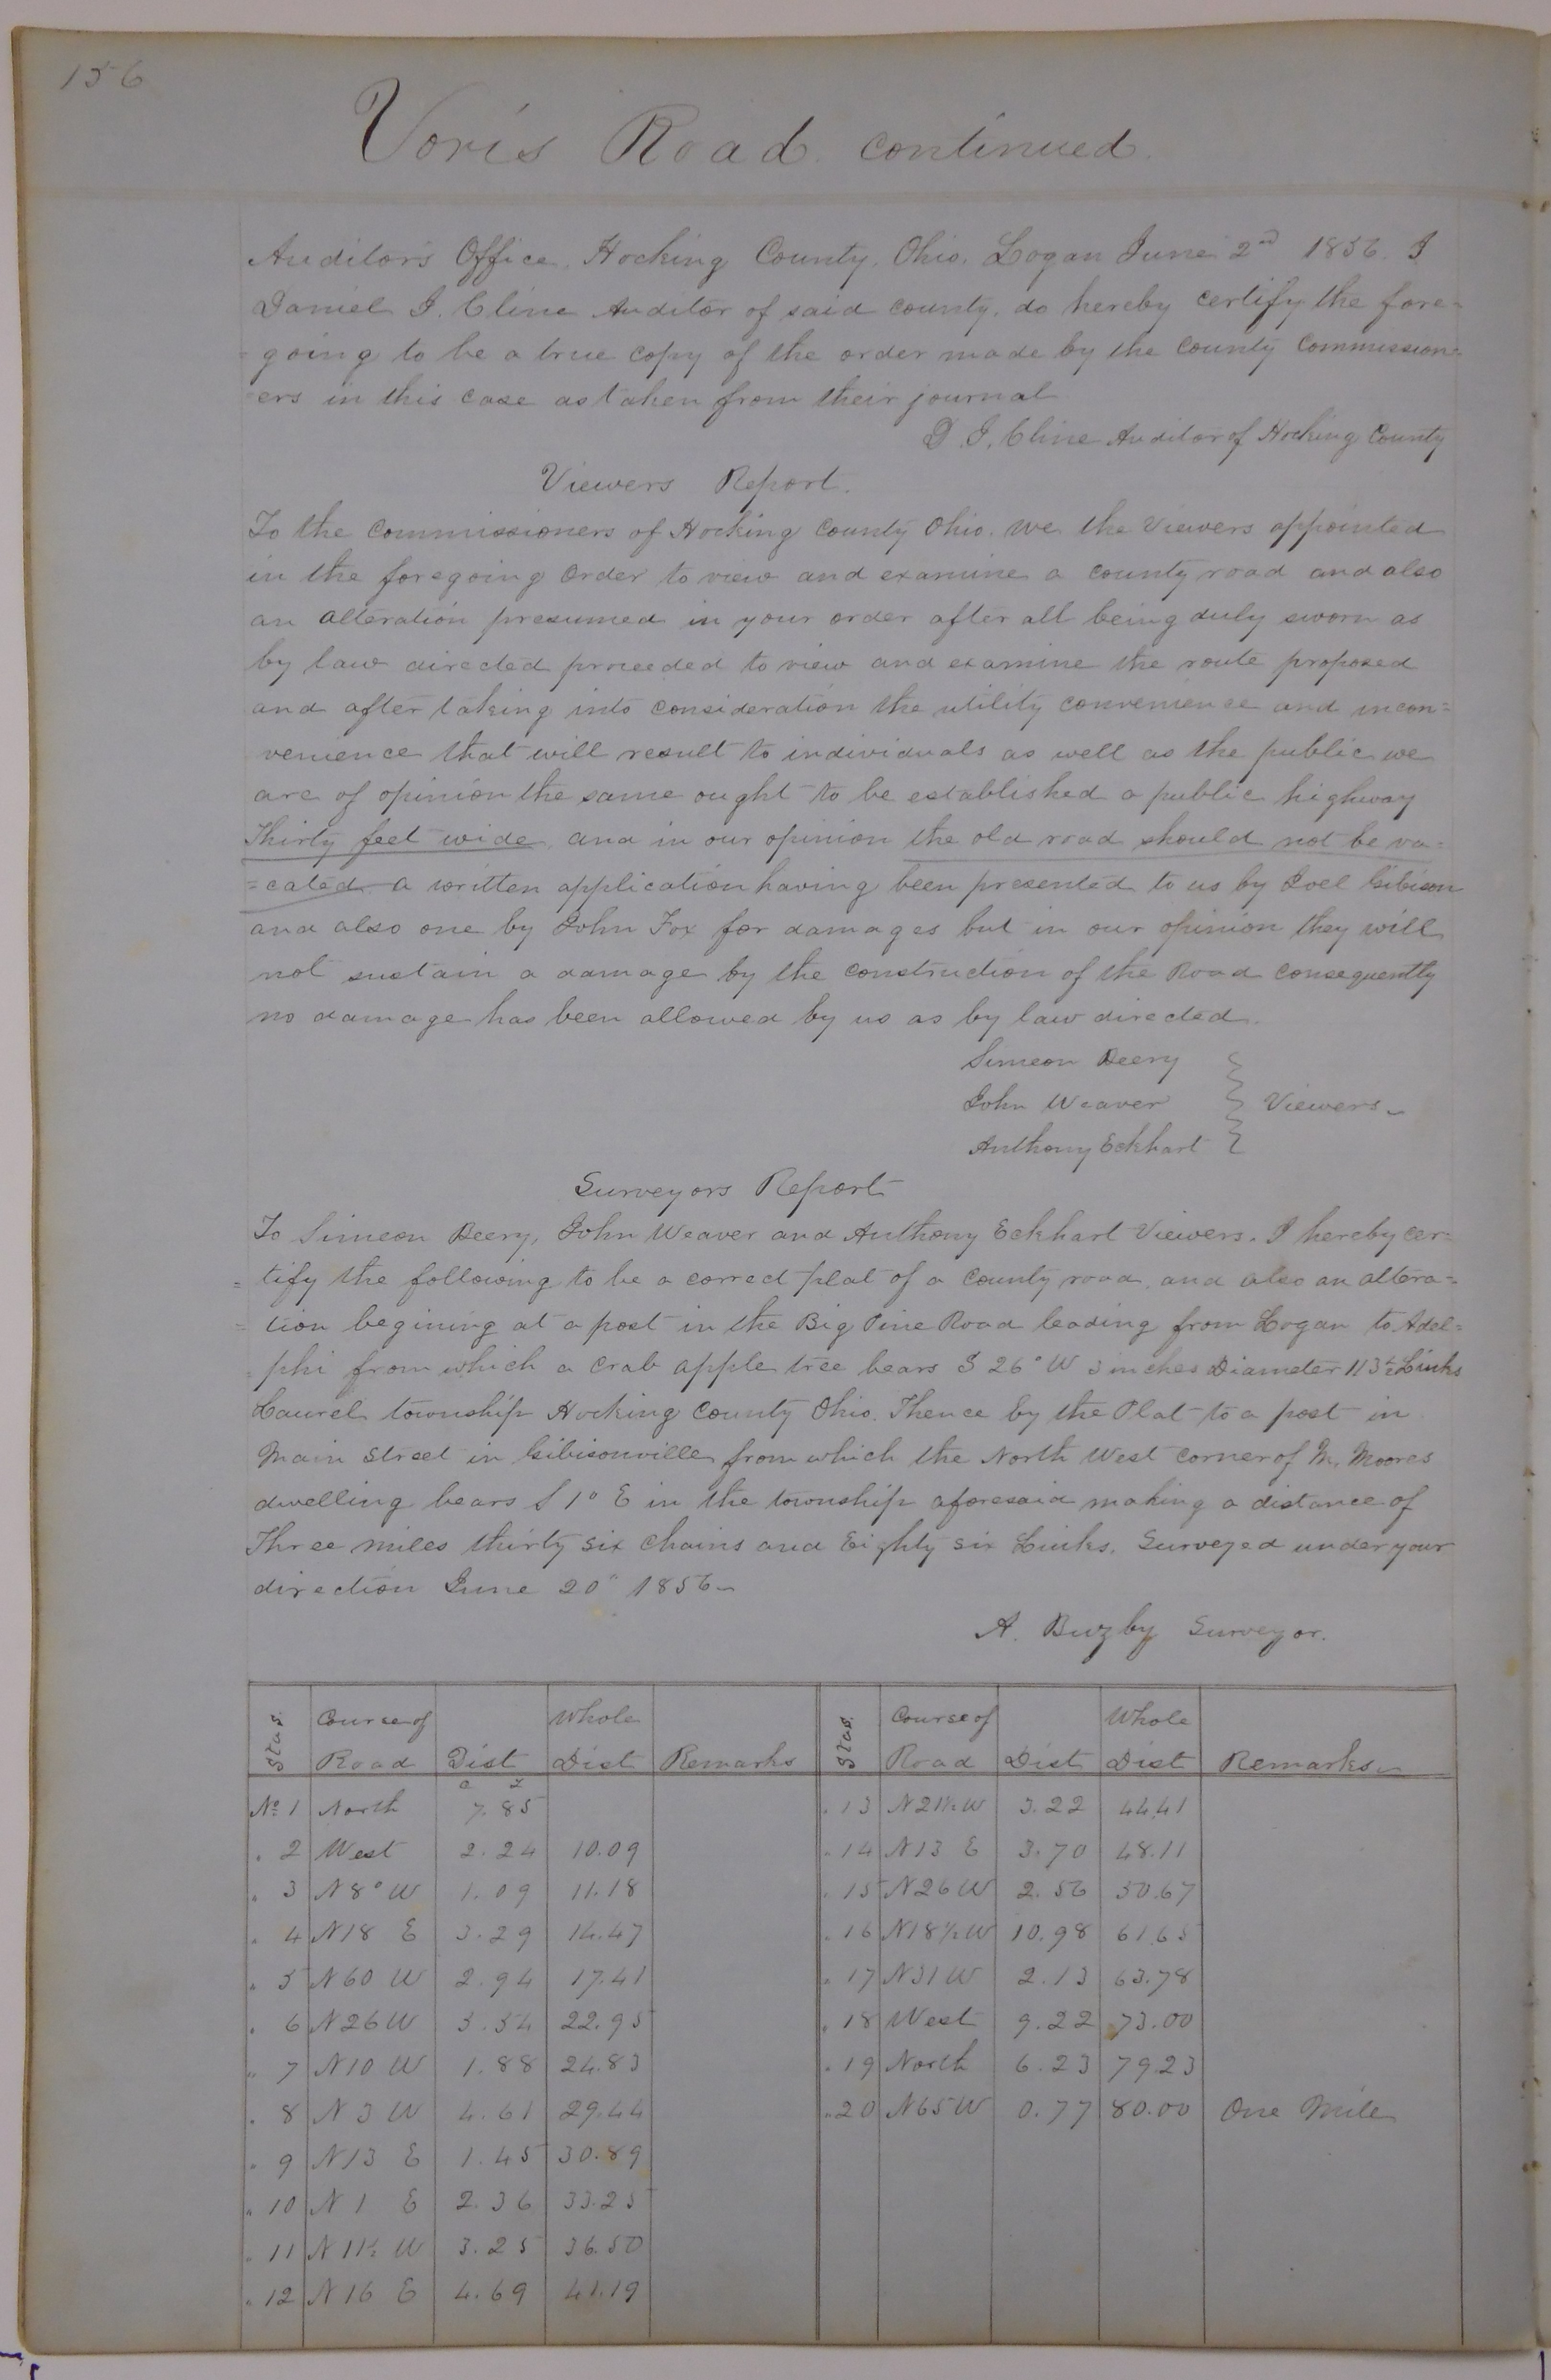 156
Voris Road. continued.
Auditor's Office. Hocking County. Ohio. Logan June 2nd 1856. I
Daniel J. Cline Auditor of said county. do hereby certify the fore=
=going to be a true copy of the order made by the County Commission=
=ers in this case as taken from their journal
D. J. Cline Auditor of Hocking County
Viewers Report.
To the Commissioners of Hocking County Ohio. we the Viewers appointed
in the foregoing Order to view and examine a county road and also
an alteration presumed in your order after all being duly sworn as
by law directed proceeded to view and examine the route proposed
and after taking into consideration the utility convenience and incon=
venience that will result to individuals as well as the public we
are of opinion the same ought to be established a public highway
Thirty feet wide, and in our opinion the old road should not be va=
=cated. a written application having been presented to us by Joel Gibison
and also one by John Fox for damages but in our opinion they will
not sustain a damage by the construction of the Road consequently
no damage has been allowed by us as by law directed.
Simeon Beery
John Weaver } Viewers
Anthony Eckhart
Surveyors Report
To Simeon Beery, John Weaver and Anthony Eckhart Viewers. I hereby cer=
=tify the following to be a correct plat of a County road. and also an altera=
=tion begining at a post in the Big Pine Road leading from Logan to Adel=
=phi from which a crab apple tree bears S 26° W 3 inches Diameter 113½ Links
Laurel township Hocking County Ohio. Thence by the Plat to a post in
Main Street in Gibisonville from which the North West corner of M. Moores
dwelling bears S 1° E in the township aforesaid making a distance of
Three miles thirty six Chains and Eighty six Links. Surveyed under your
direction June 20" 1856
A. Buzby Surveyor.
Stas. Course of Road Dist Whole Dist Remarks Stas. Course of Road Dist Whole Dist Remarks
C L
No. 1 North 7.85 " 13 N21½W 3.22 44.41
" 2 West 2.24 10.09 " 14 N13 E 3.70 48.11
" 3 N8°W 1.09 11.18 " 15 N26W 2.56 50.67
" 4 N18 E 3.29 14.47 " 16 N18½W 10.98 61.65
" 5 N60 W 2.94 17.41 " 17 N31W 2.13 63.78
" 6 N26W 5.54 22.95 " 18 West 9.22 73.00
" 7 N10 W 1.88 24.83 " 19 North 6.23 79.23
" 8 N 3 W 4.61 29.44 " 20 N65W 0.77 80.00 One Mile
" 9 N13 E 1.45 30.89
" 10 N 1 E 2.36 33.25
" 11 N 11½ W 3.25 36.50
" 12 N 16 E 4.69 41.19